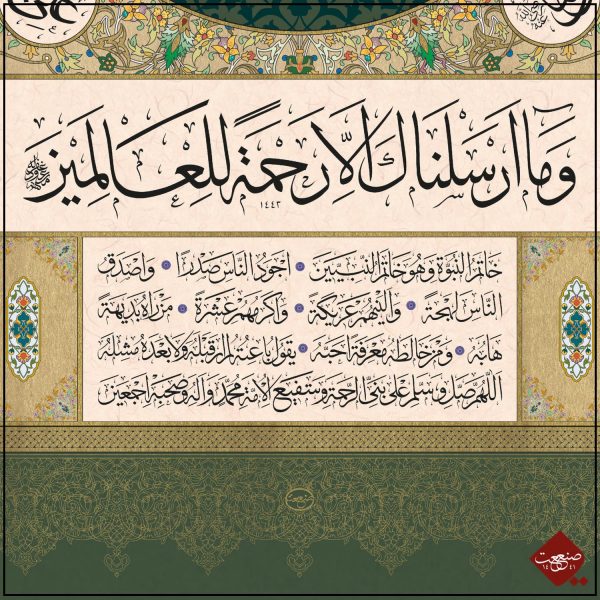 وما ارسلناك الا رحمة للعالمين
١٤٤٣
خاتم النبوة وهو خاتم النبيين اجود الناس صدرا واصدق
الناس لهجة والينهم عريكة واكرمهم عشرة من راه بديهة
هابه ومن خالطه معرفة احبه يقول ناعته لم ار قبله ولا بعده مثله
اللهم صل وسلم على نبى الرحمة وشفيع الامة محمد واله وصحبه اجمعين
صنعت
١٤ ٤١